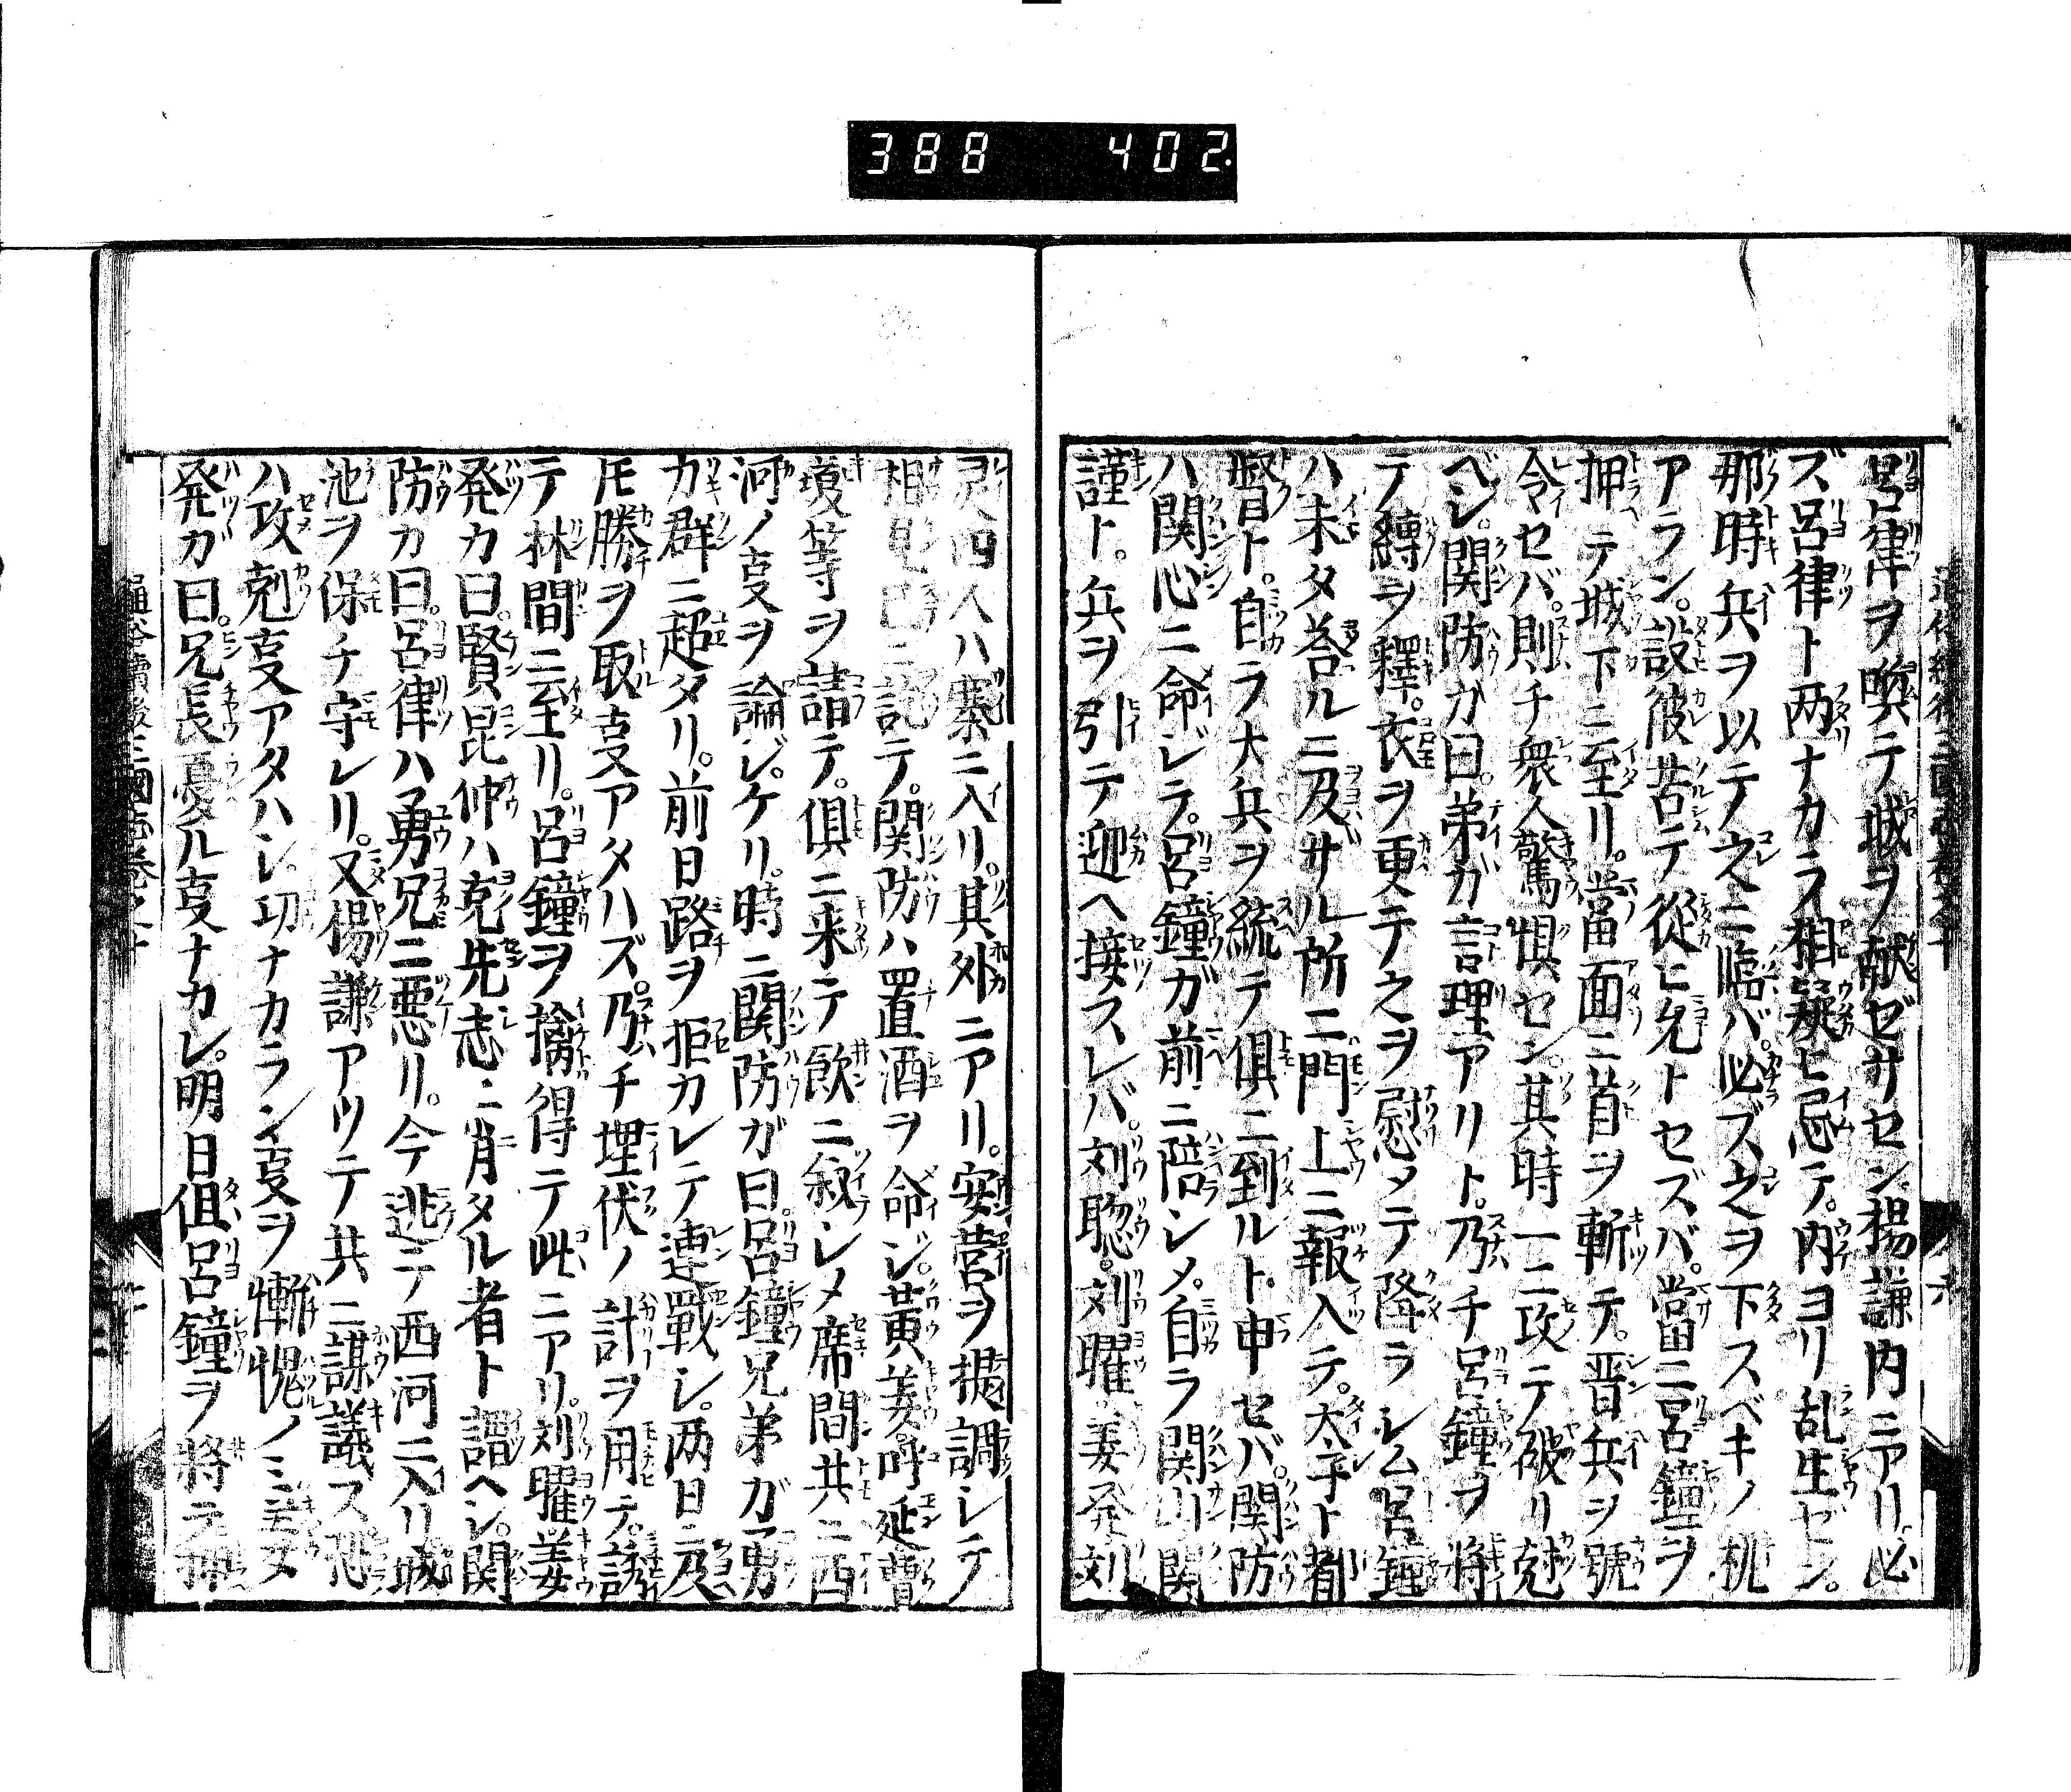 388 402
呂律ヲ喚テ城ヲ献ゼサセン楊謙内ニアリ必
ズ呂律ト两ナカラ相疑ヒ忌テ。内ヨリ乱生ゼン。
那時兵ヲ以テ之ニ臨バ。必ズ之ヲ下スベキノ机
アラン。設彼苦テ從ヒ允トセズバ。當ニ呂鐘ヲ
押テ城下ニ至リ。當面ニ首ヲ斬テ。晋兵ヲ號
令セバ。則チ衆人驚惧セン。其時一ニ攻テ破リ尅
ベシ。関防ガ曰。弟ガ言理アリト。乃チ呂鐘ヲ将
テ縛ヲ釋。衣ヲ更テ之ヲ慰メテ降ラシム呂鐘
ハ未タ荅ルニ及サル所ニ門上ニ報入テ。太子ト都
督ト。自ラ大兵ヲ統テ俱ニ到ルト申セバ。関防
ハ関心ニ命シテ。呂鐘ガ前ニ陪シメ。自ラ関山関
謹ト。兵ヲ引テ迎ヘ接スレバ。刘聡。刘曜。姜発刘
灵四人ハ寨ニ入リ。其外ニアリ。安営ヲ撥調シテ
相見已ニ訖テ。関防ハ置酒ヲ命ジ。黄姜。呼延曹
等ヲ請テ。俱ニ来テ飲ニ叙シメ席間共ニ西
河ノ㕝ヲ論ジケリ。時ニ関防ガ曰。呂鐘兄弟ガ勇
ガ群ニ超タリ。前日路ヲ拒カレテ連戰シ。两日ニ及
モ勝ヲ取㕝アタハズ。乃チ埋伏ノ計ヲ用テ。誘
テ林間ニ至リ。呂鐘ヲ擒得テ此ニアリ。刘曜姜
発カ曰。賢昆仲ハ克先志ニ肖タル者ト謂ヘシ。関
防カ曰。呂律ハ勇兄ニ悪リ。今逃テ西河ニ入リ城
池ヲ保チ守レリ。又楊謙アツテ共ニ謀議ス恐
ハ攻尅㕝アタハシ。功ナカラン㕝ヲ慚愧ノミ姜
発ガ曰。兄長憂ル㕝ナカレ。明日但呂鐘ヲ將テ押